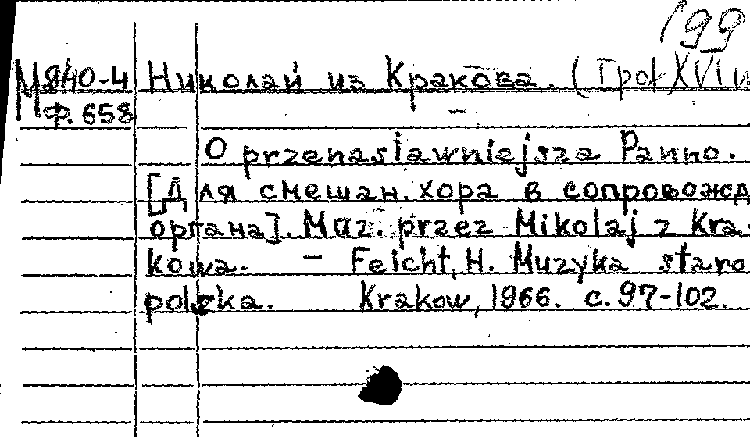 199
М 940-4 Николай из Кракова. (Трог XVI
Ф. 658
O przenasławniejsza Panno.
[Для смешан. хора в сопровожд
органа]. Muz. przez Mikolaj z Kra-
kowa. – Feicht, H. Muzyka staro
polska. Krakow, 1966. с. 97-102.